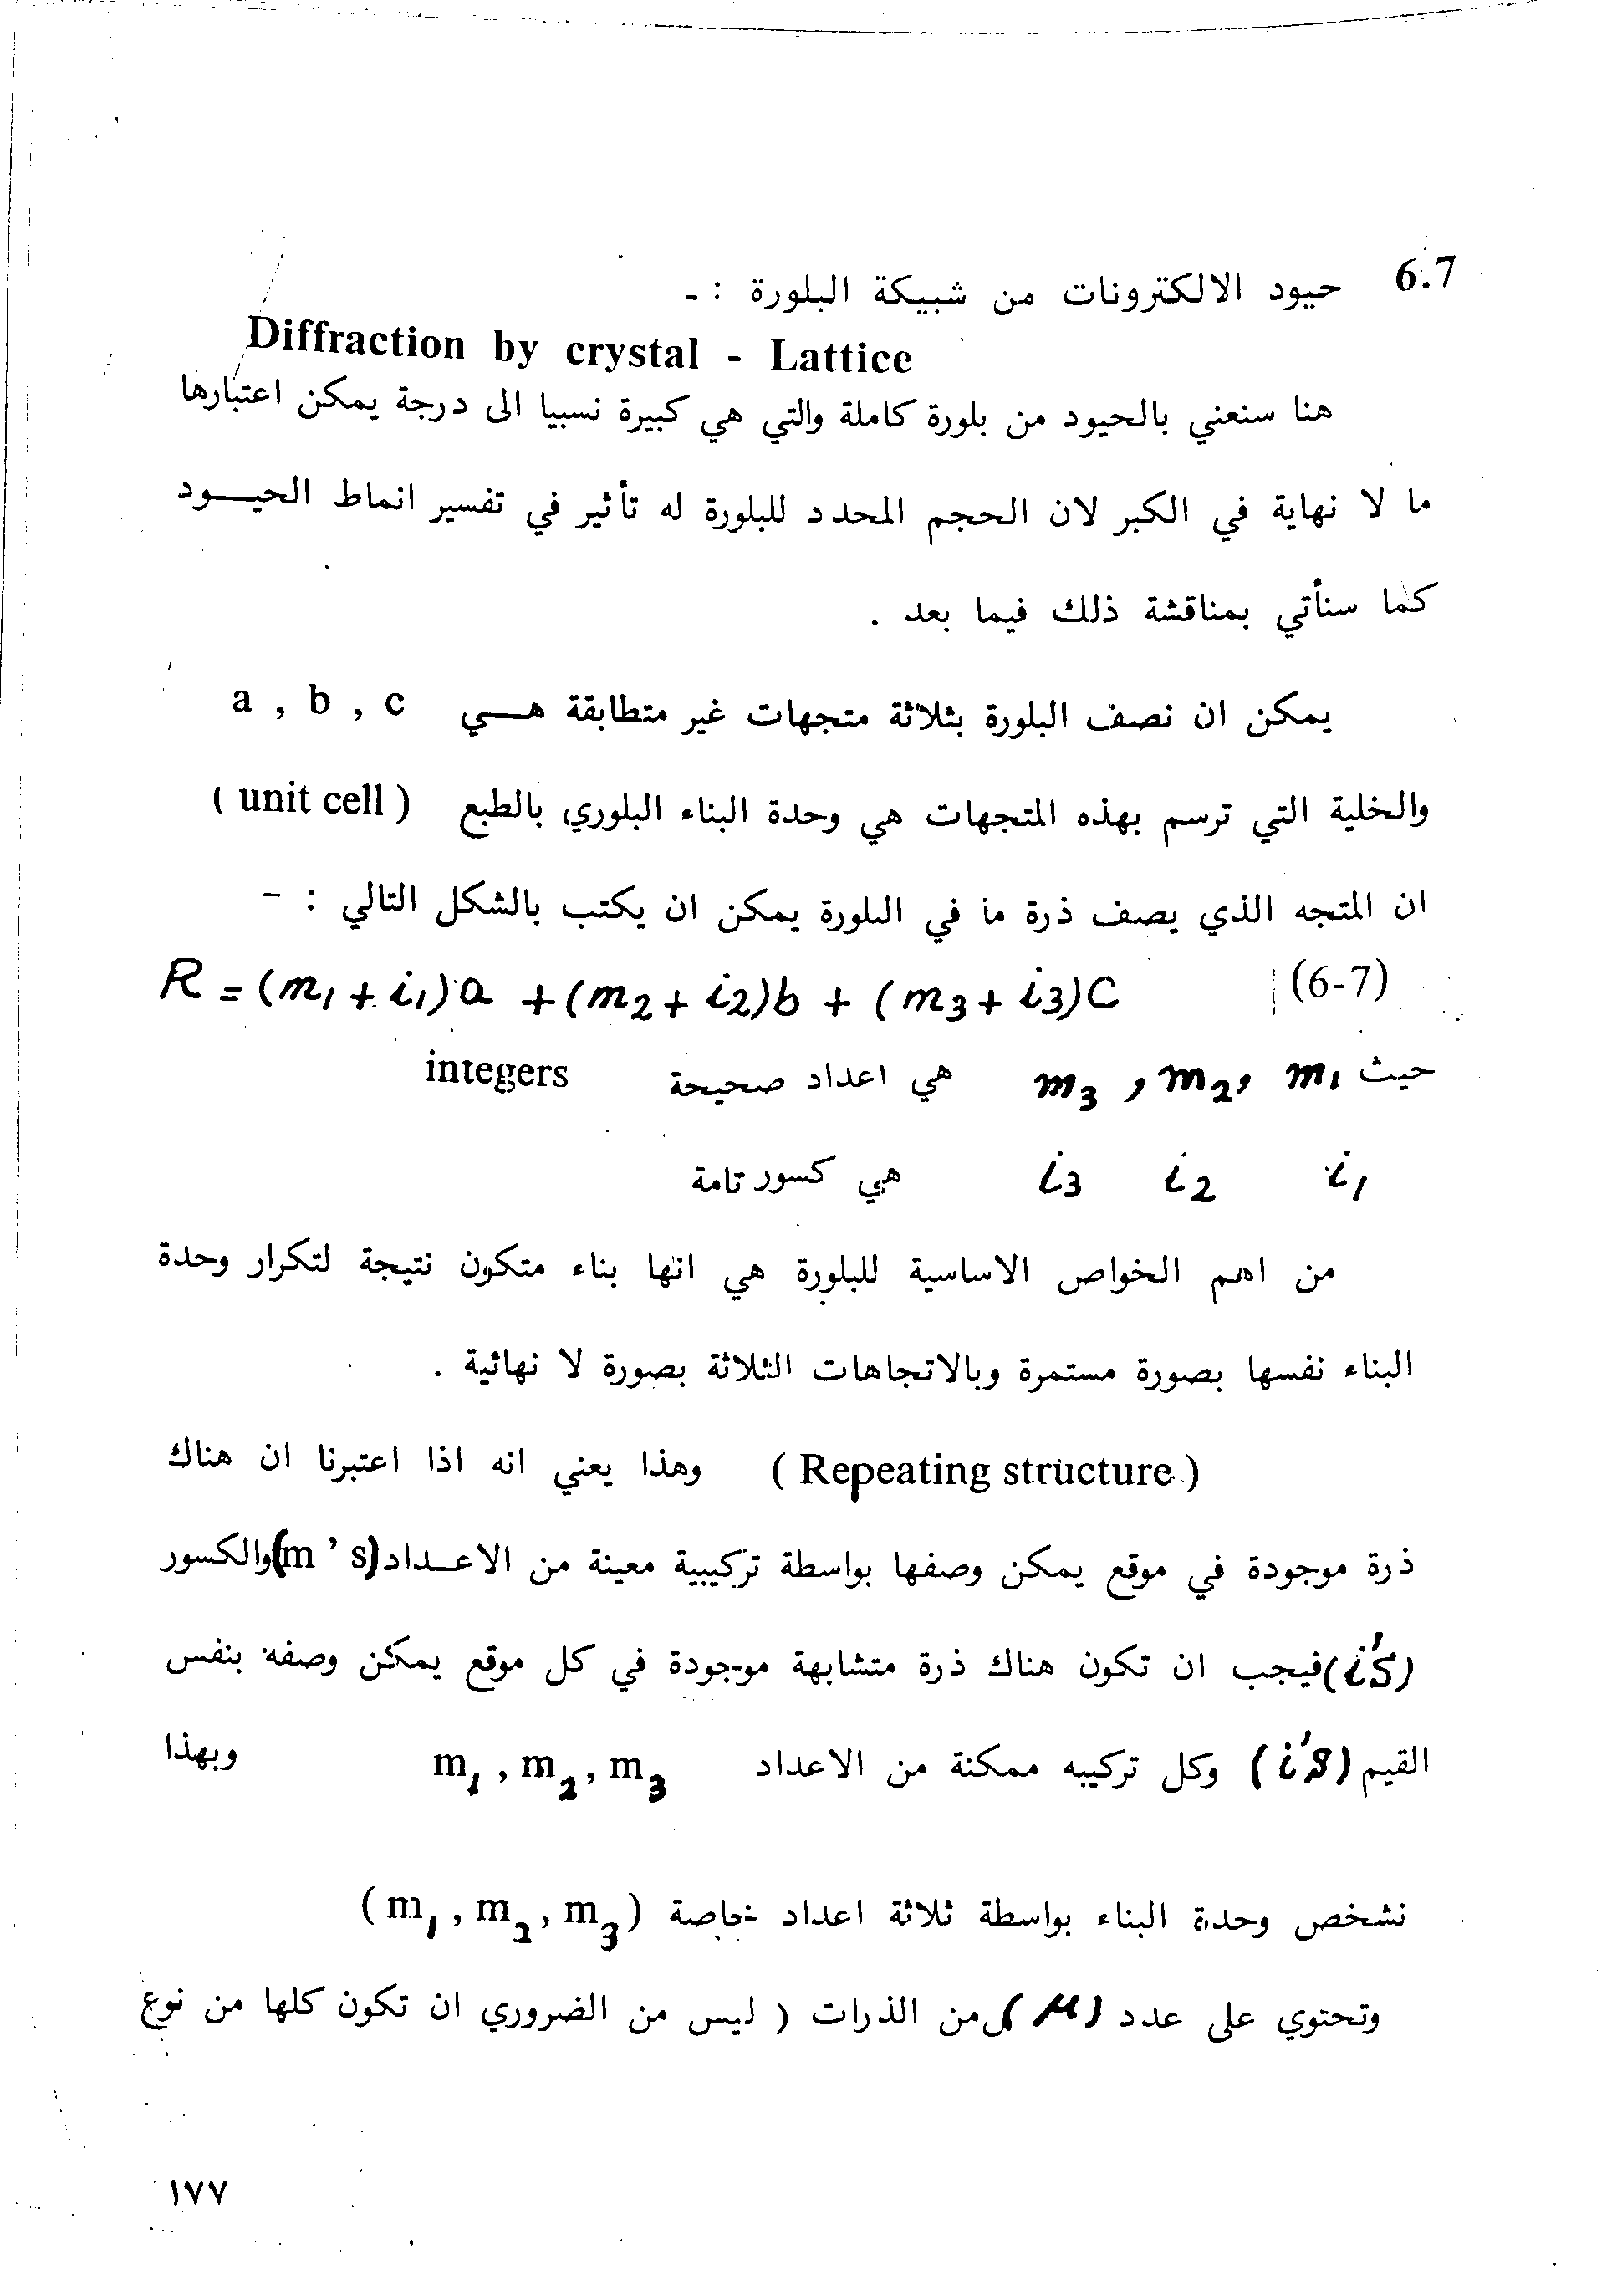 6.7 حيود الالكترونات من شبيكة البلورة : -
Diffraction by crystal - Lattice
هنا سنعني بالحيود من بلورة كاملة والتي هي كبيرة نسبيا الى درجة يمكن اعتبارها
ما لا نهاية في الكبر لان الحجم المحدد للبلورة له تأثير في تفسير انماط الحيـــود
كما سنأتي بمناقشة ذلك فيما بعد .
يمكن ان نصف البلورة بثلاثة متجهات غير متطابقة هـــي a , b , c
والخلية التي ترسم بهذه المتجهات هي وحدة البناء البلوري بالطبع ( unit cell )
ان المتجه الذي يصف ذرة ما في البلورة يمكن ان يكتب بالشكل التالي : -
R = (m₁ + i₁)a + (m₂ + i₂)b + (m₃ + i₃)C (6-7)
حيث m₁ , m₂ , m₃ هي اعداد صحيحة integers
i₁ i₂ i₃ هي كسور تامة
من اهم الخواص الاساسية للبلورة هي انها بناء متكون نتيجة لتكرار وحدة
البناء نفسها بصورة مستمرة وبالاتجاهات الثلاثة بصورة لا نهائية .
( Repeating structure ) وهذا يعني انه اذا اعتبرنا ان هناك
ذرة موجودة في موقع يمكن وصفها بواسطة تركيبية معينة من الاعــداد (m ' s) والكسور
(i's) فيجب ان تكون هناك ذرة متشابهة موجودة في كل موقع يمكن وصفه بنفس
القيم (i's) وكل تركيبه ممكنة من الاعداد m₁ , m₂ , m₃ وبهذا
نشخص وحدة البناء بواسطة ثلاثة اعداد خاصة (m₁ , m₂ , m₃)
وتحتوي على عدد (μ) من الذرات ( ليس من الضروري ان تكون كلها من نوع
١٧٧